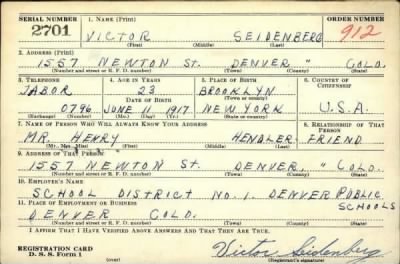 SERIAL NUMBER 1. NAME (Print) ORDER NUMBER
2701 VICTOR SEIDENBERG 912
(First) (Middle) (Last)
2. ADDRESS (Print)
1557 NEWTON St. DENVER " COLO.
(Number and street or R. F. D. number) (Town) (County) (State)
3. TELEPHONE 4. AGE IN YEARS 5. PLACE OF BIRTH 6. COUNTRY OF CITIZENSHIP
TABOR 23 BROOKLYN
(Town or county)
0796 JUNE 11 1917 NEW YORK U.S.A.
(Exchange) (Number) (Mo.) (Day) (Yr.) (State or country)
7. NAME OF PERSON WHO WILL ALWAYS KNOW YOUR ADDRESS 8. RELATIONSHIP OF THAT PERSON
MR. HENRY HENDLER FRIEND
(Mr., Mrs., Miss) (First) (Middle) (Last)
9. ADDRESS OF THAT PERSON
1557 NEWTON St. DENVER, " COLO.
(Number and street or R. F. D. number) (Town) (County) (State)
10. EMPLOYER'S NAME
SCHOOL DISTRICT NO. 1 DENVER PUBLIC SCHOOLS
11. PLACE OF EMPLOYMENT OR BUSINESS
DENVER COLO.
(Number and street or R. F. D. number) (Town) (County) (State)
I AFFIRM THAT I HAVE VERIFIED ABOVE ANSWERS AND THAT THEY ARE TRUE.
REGISTRATION CARD
D. S. S. Form 1 (over) Victor Seidenberg
(Registrant's signature)